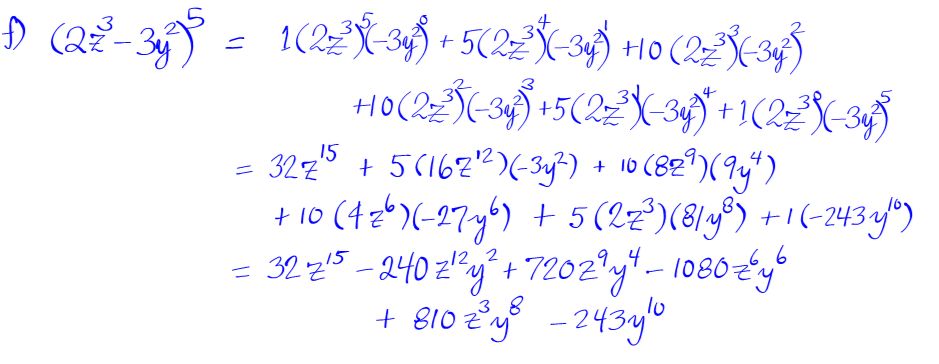 f) (2z³ - 3y²)⁵ = 1(2z³)⁵(-3y²)⁰ + 5(2z³)⁴(-3y²)¹ + 10(2z³)³(-3y²)²
+10(2z³)²(-3y²)³ + 5(2z³)¹(-3y²)⁴ + 1(2z³)⁰(-3y²)⁵
= 32z¹⁵ + 5(16z¹²)(-3y²) + 10(8z⁹)(9y⁴)
+ 10(4z⁶)(-27y⁶) + 5(2z³)(81y⁸) + 1(-243y¹⁰)
= 32z¹⁵ - 240z¹²y² + 720z⁹y⁴ - 1080z⁶y⁶
+ 810z³y⁸ - 243y¹⁰